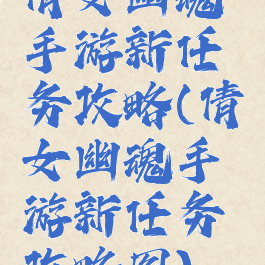 倩女幽魂
手游新任
务攻略(倩
女幽魂手
游新任务
攻略图)